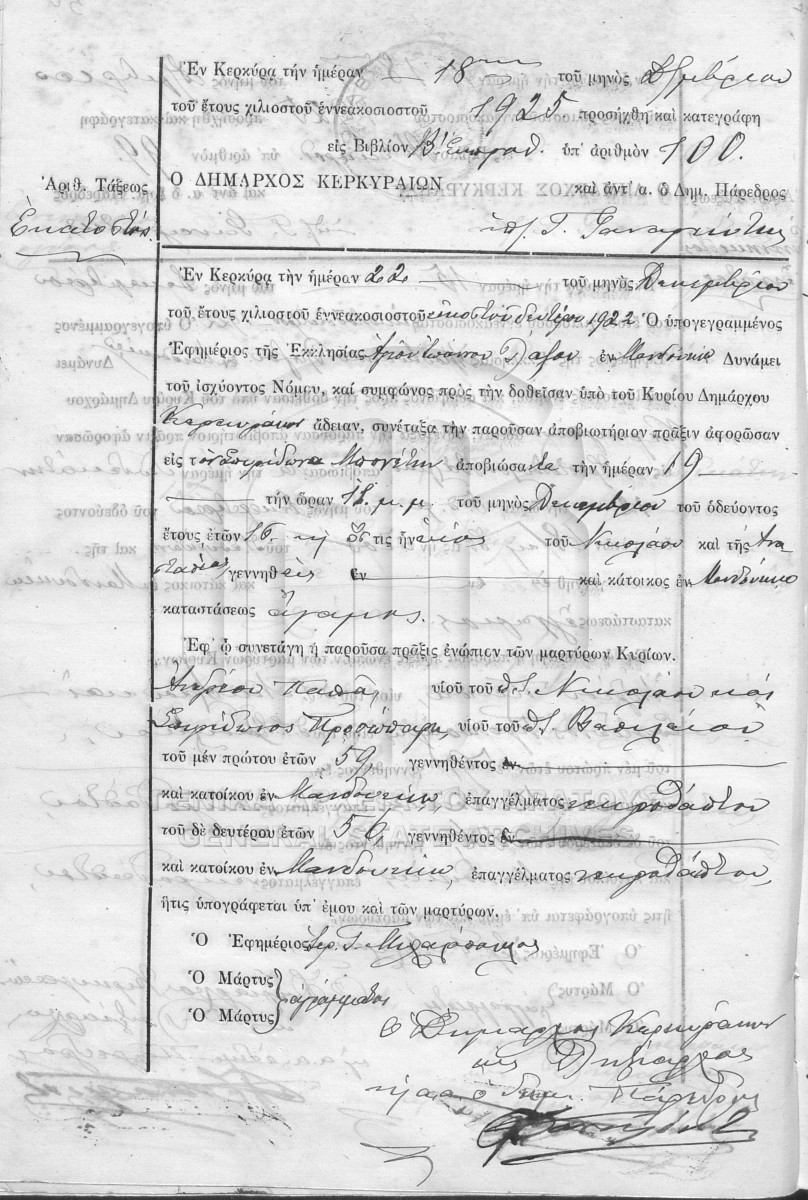 Ἐν Κερκύρᾳ τὴν ἡμέραν 18ην τοῦ μηνὸς
τοῦ ἔτους χιλιοστοῦ ἐννεακοσιοστοῦ 1925 προσήχθη καὶ κατεγράφη
εἰς Βιβλίον ὑπ' ἀριθμὸν 100.
Ἀριθ. Τάξεως
Ο ΔΗΜΑΡΧΟΣ ΚΕΡΚΥΡΑΙΩΝ καὶ ἀντ' α. ὁ Δημ. Πάρεδρος
Ἑκατοστός
ὑπ. Γ.
Ἐν Κερκύρᾳ τὴν ἡμέραν 22 τοῦ μηνὸς Δεκεμβρίου
τοῦ ἔτους χιλιοστοῦ ἐννεακοσιοστοῦ εἰκοστοῦ δευτέρου 1922 Ὁ ὑπογεγραμμένος
Ἐφημέριος τῆς Ἐκκλησίας Ἁγίου Ἰωάννου ἐν Μανδουκίῳ Δυνάμει
τοῦ ἰσχύοντος Νόμου, καί συμφώνος πρὸς τὴν δοθεῖσαν ὑπὸ τοῦ Κυρίου Δημάρχου
Κερκυραίων ἄδειαν, συνέταξα τὴν παροῦσαν ἀποβιωτήριον πρᾶξιν ἀφορῶσαν
εἰς τὸν Σπυρίδωνα ἀποβιώσαντα τὴν ἡμέραν 19
τὴν ὥραν 11 μ.μ. τοῦ μηνὸς Δεκεμβρίου τοῦ ὁδεύοντος
ἔτους ἐτῶν 16 ὅστις ἦν υἱὸς τοῦ Νικολάου καὶ τῆς Ἀνα
στασίας γεννηθεὶς ἐν καὶ κάτοικος ἐν Μανδουκίῳ
καταστάσεως ἄγαμος.
Ἐφ' ᾧ συνετάγη ἡ παροῦσα πρᾶξις ἐνώπιον τῶν μαρτύρων Κυρίων.
Ἀνδρέου Παπᾶ υἱοῦ τοῦ Νικολάου καὶ
Σπυρίδωνος υἱοῦ τοῦ Βασιλείου
τοῦ μέν πρώτου ἐτῶν 59 γεννηθέντος ἐν
καὶ κατοίκου ἐν Μανδουκίῳ, ἐπαγγέλματος νεκροθάπτου
τοῦ δὲ δευτέρου ἐτῶν 56 γεννηθέντος ἐν
GENERAL STATE ARCHIVES
καὶ κατοίκου ἐν Μανδουκίῳ, ἐπαγγέλματος νεκροθάπτου,
ἥτις ὑπογράφεται ὑπ' ἐμου καὶ τῶν μαρτύρων.
Ὁ Ἐφημέριος Ἱερ. Γ.
Ὁ Μάρτυς
Ὁ Μάρτυς ἀγράμματοι
Ὁ Δήμαρχος Κερκυραίων
ὡς Ληξίαρχος
κ α α ὁ Δημ. Πάρεδρος